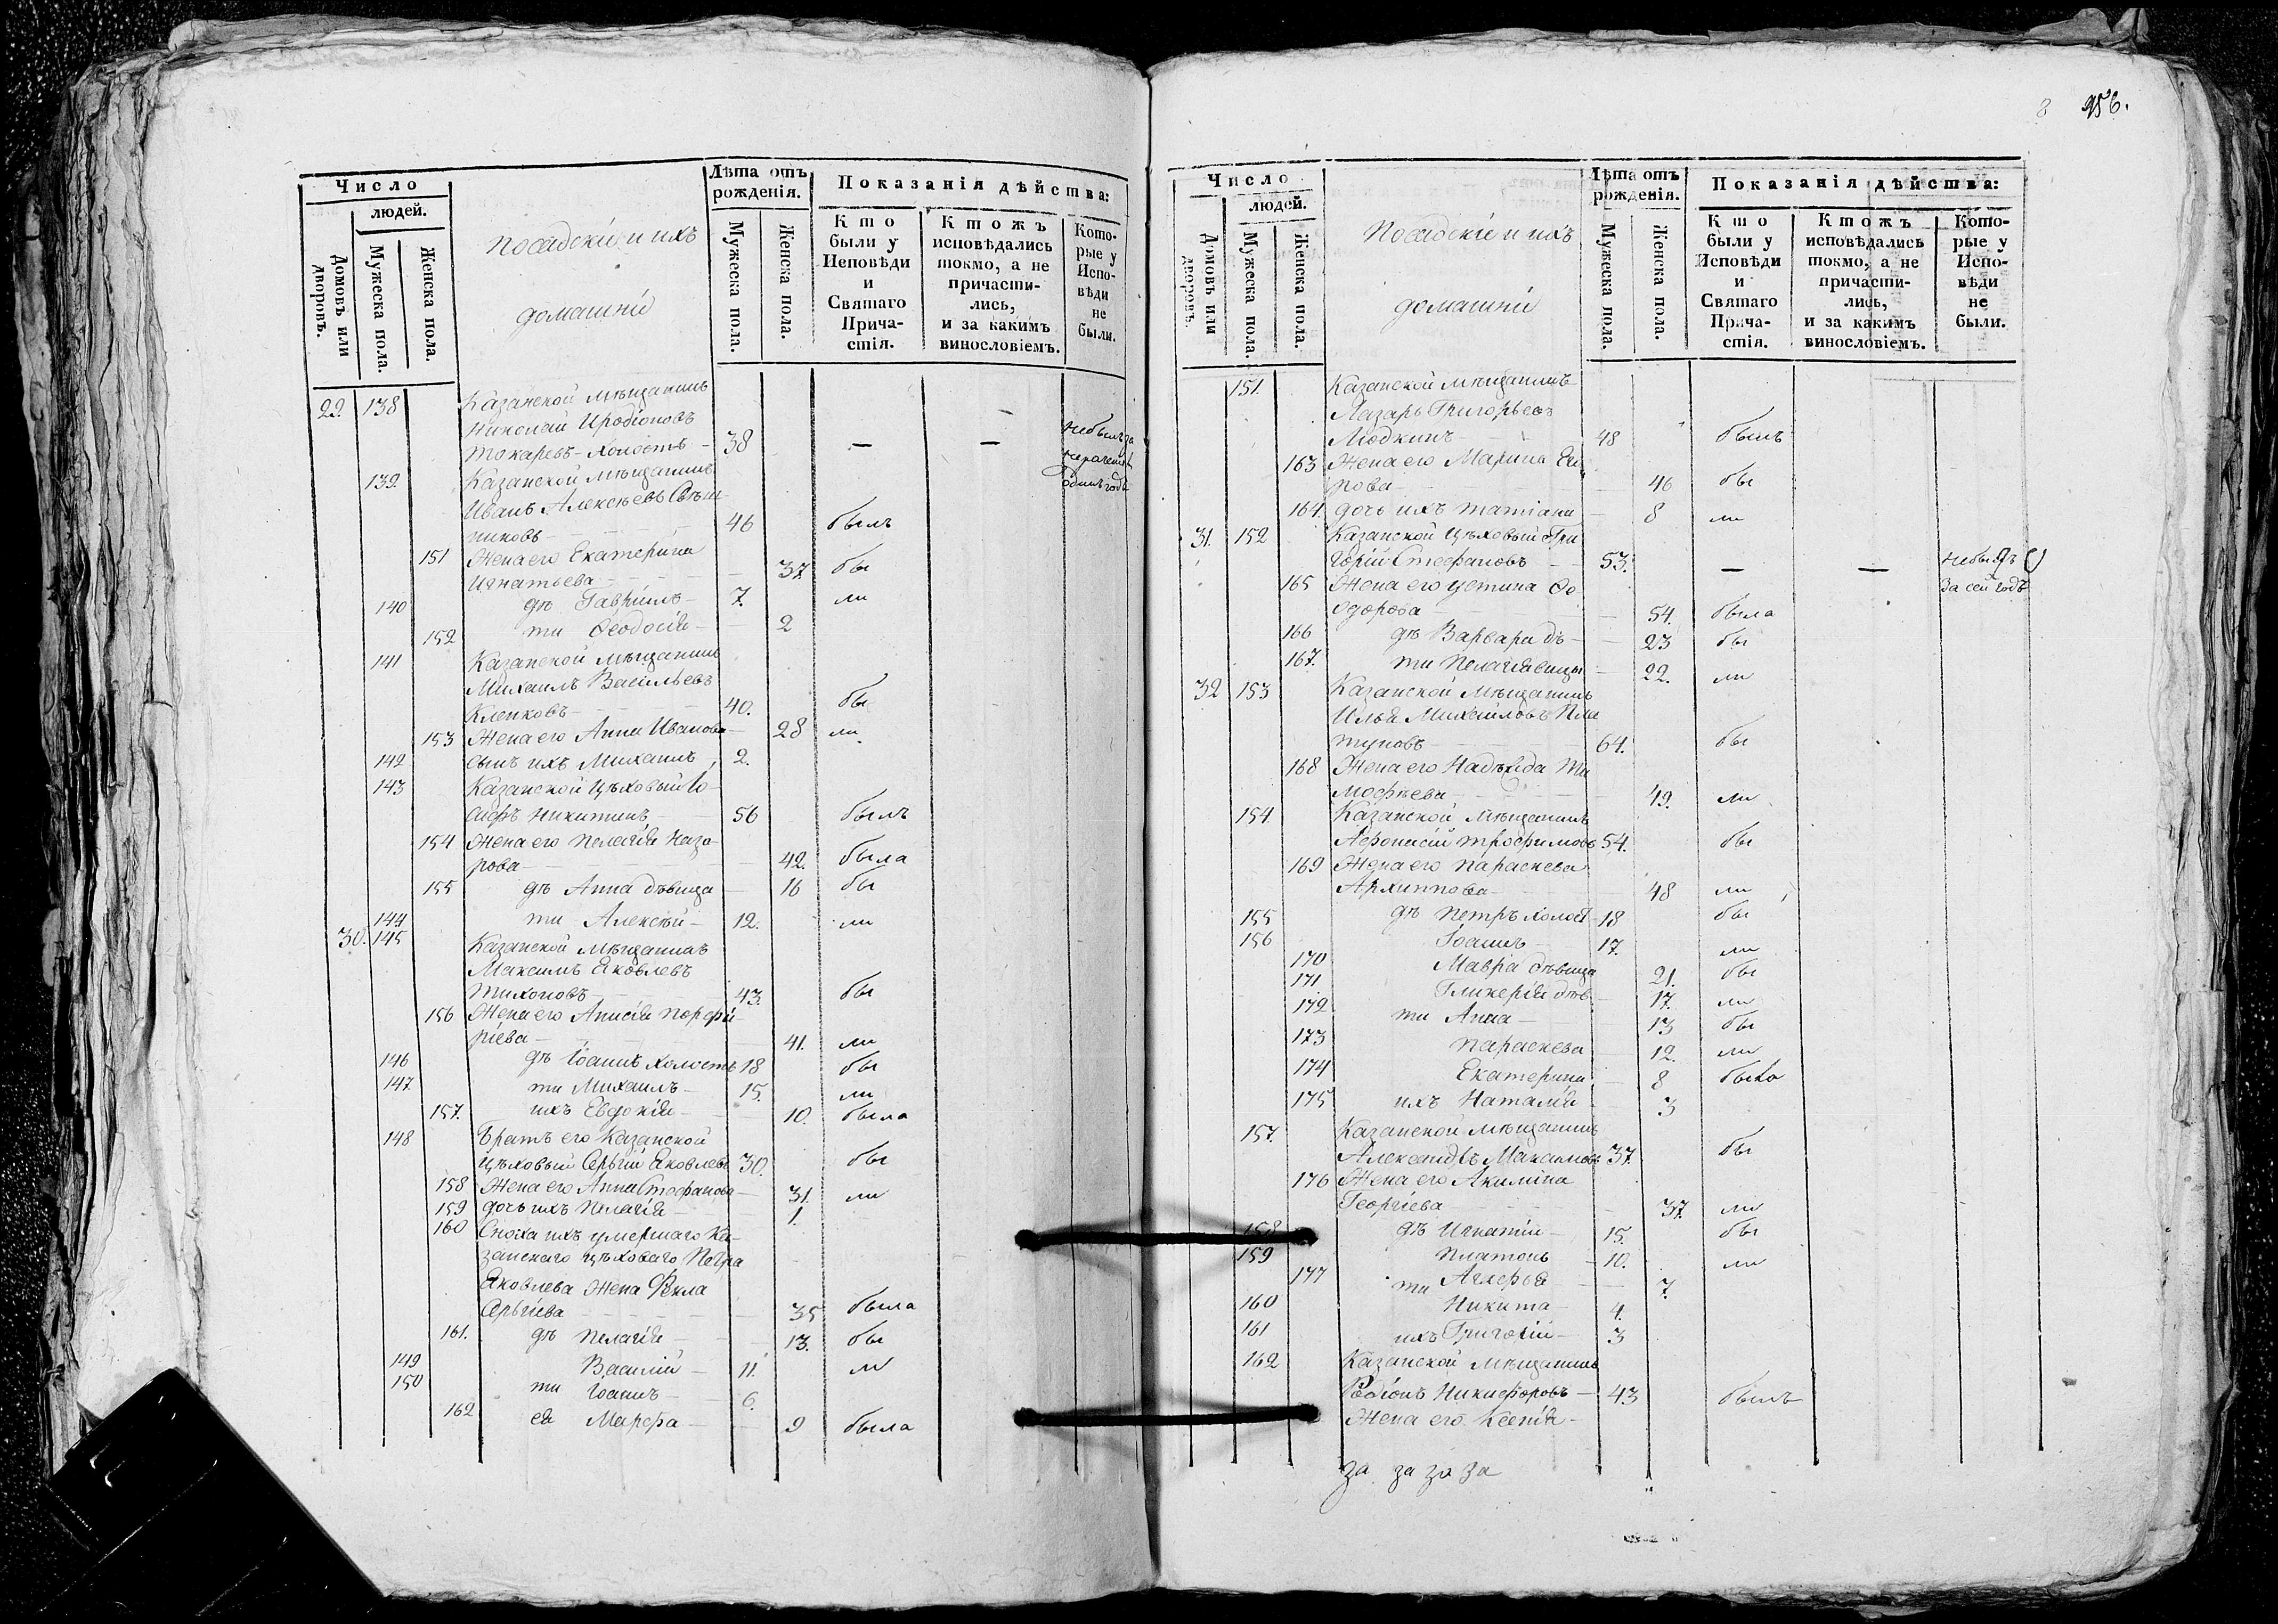 Число
людей.
Домовъ или дворовъ.
Мужеска пола.
Женска пола.
Посадскіи и ихъ
домашніи
Лѣта отъ рожденія.
Мужеска пола.
Женска пола.
Показанія дѣйства:
Кто были у Исповѣди и Святаго Причастія.
Ктожъ исповѣдались токмо, а не причастились, и за какимъ винословіемъ.
Которые у Исповѣди не были.
29. 138 Казанской мѣщанинъ
Николай Иродіоновъ
Токаревъ - холостъ - 38 — — небылъ за
139. Казанской мѣщанинъ
Иванъ Алексѣевъ одинъ годъ
никовъ 46 былъ
151 Жена его Екатерина
Игнатьева 37. бы
140 дѣ Гавріилъ 7. ли
152 ти Ѳеодосія 2
141 Казанской мѣщанинъ
Михаилъ Васильевъ
Клепковъ 40. бы
153 Жена его Анна Иванова 28 ли
142 сынъ ихъ Михаилъ 2.
143 Казанской цѣховый Іо-
сифъ Никитинъ 56 былъ
154 Жена его Пелагія Наза-
рова 42. была
155 дѣ Анна дѣвица 16 бы
144 ти Алексѣй 12. ли
30. 145 Казанской мѣщанинъ
Максимъ Яковлевъ
Тихоновъ 43. бы
156 Жена его Анисія Порфи-
ріева 41. ли
146 дѣ Іоаннъ холостъ 18 бы
147 ти Михаилъ 15. ли
157. ихъ Евдокія 10. была
148 Братъ его Казанской
цѣховый Сергій Яковлевъ 30. бы
158 Жена его Анна Стефанова 31. ли
159 дочь ихъ Пелагія 1.
160 Сноха ихъ умершаго Ка-
занскаго цѣховаго Петра
Яковлева жена Ѳекла
Сергіева 35 была
161. дѣ Пелагія 13. бы
149 Василій 11. ли
150 ти Іоаннъ 6.
162 ея Марфа 9 была
956.
Число
людей.
Домовъ или дворовъ.
Мужеска пола.
Женска пола.
Посадскіи и ихъ
домашніи
Лѣта отъ рожденія.
Мужеска пола.
Женска пола.
Показанія дѣйства:
Кто были у Исповѣди и Святаго Причастія.
Ктожъ исповѣдались токмо, а не причастились, и за какимъ винословіемъ.
Которые у Исповѣди не были.
151. Казанской мѣщанинъ
Лазарь Григорьевъ
Людкинъ 48 былъ
163 Жена его Марина Его
рова 46 бы
164. дочь ихъ Татіана 8 ли
31. 152 Казанской цѣховый Гри
горій Стефановъ 53. — — небылъ
165 Жена его Устина Ѳе за сей годъ
одорова 54. была
166 дѣ Варвара дѣ- 23 бы
167. ти Пелагія вицы 22. ли
32 153 Казанской мѣщанинъ
Илья Михайловъ Пла
туновъ 64. бы
168 Жена его Надежда Ти
мофѣева 49. ли
154 Казанской мѣщанинъ
Афонасій Трофимовъ 54. бы
169 Жена его Параскева
Архиппова 48 ли
155 дѣ Петръ холост 18 бы
156 Іоаннъ 17. ли
170 Мавра дѣвица 21. бы
171 Гликерія дѣв. 17. ли
172 ти Анна 13 бы
173 Параскева 12. ли
174 Екатерина 8 была
175 ихъ Наталія 3
157. Казанской мѣщанинъ
Александръ Максимовъ 37. бы
176 Жена его Акилина
Георгіева 37. ли
158 дѣ Игнатій 15. бы
159 Платонъ 10. ли
177 ти 7.
160 Никита 4.
161 ихъ Григорій 3
162 Казанской мѣщанинъ
Родіонъ Никифоровъ 43 былъ
Жена его Ксенія
за за за за